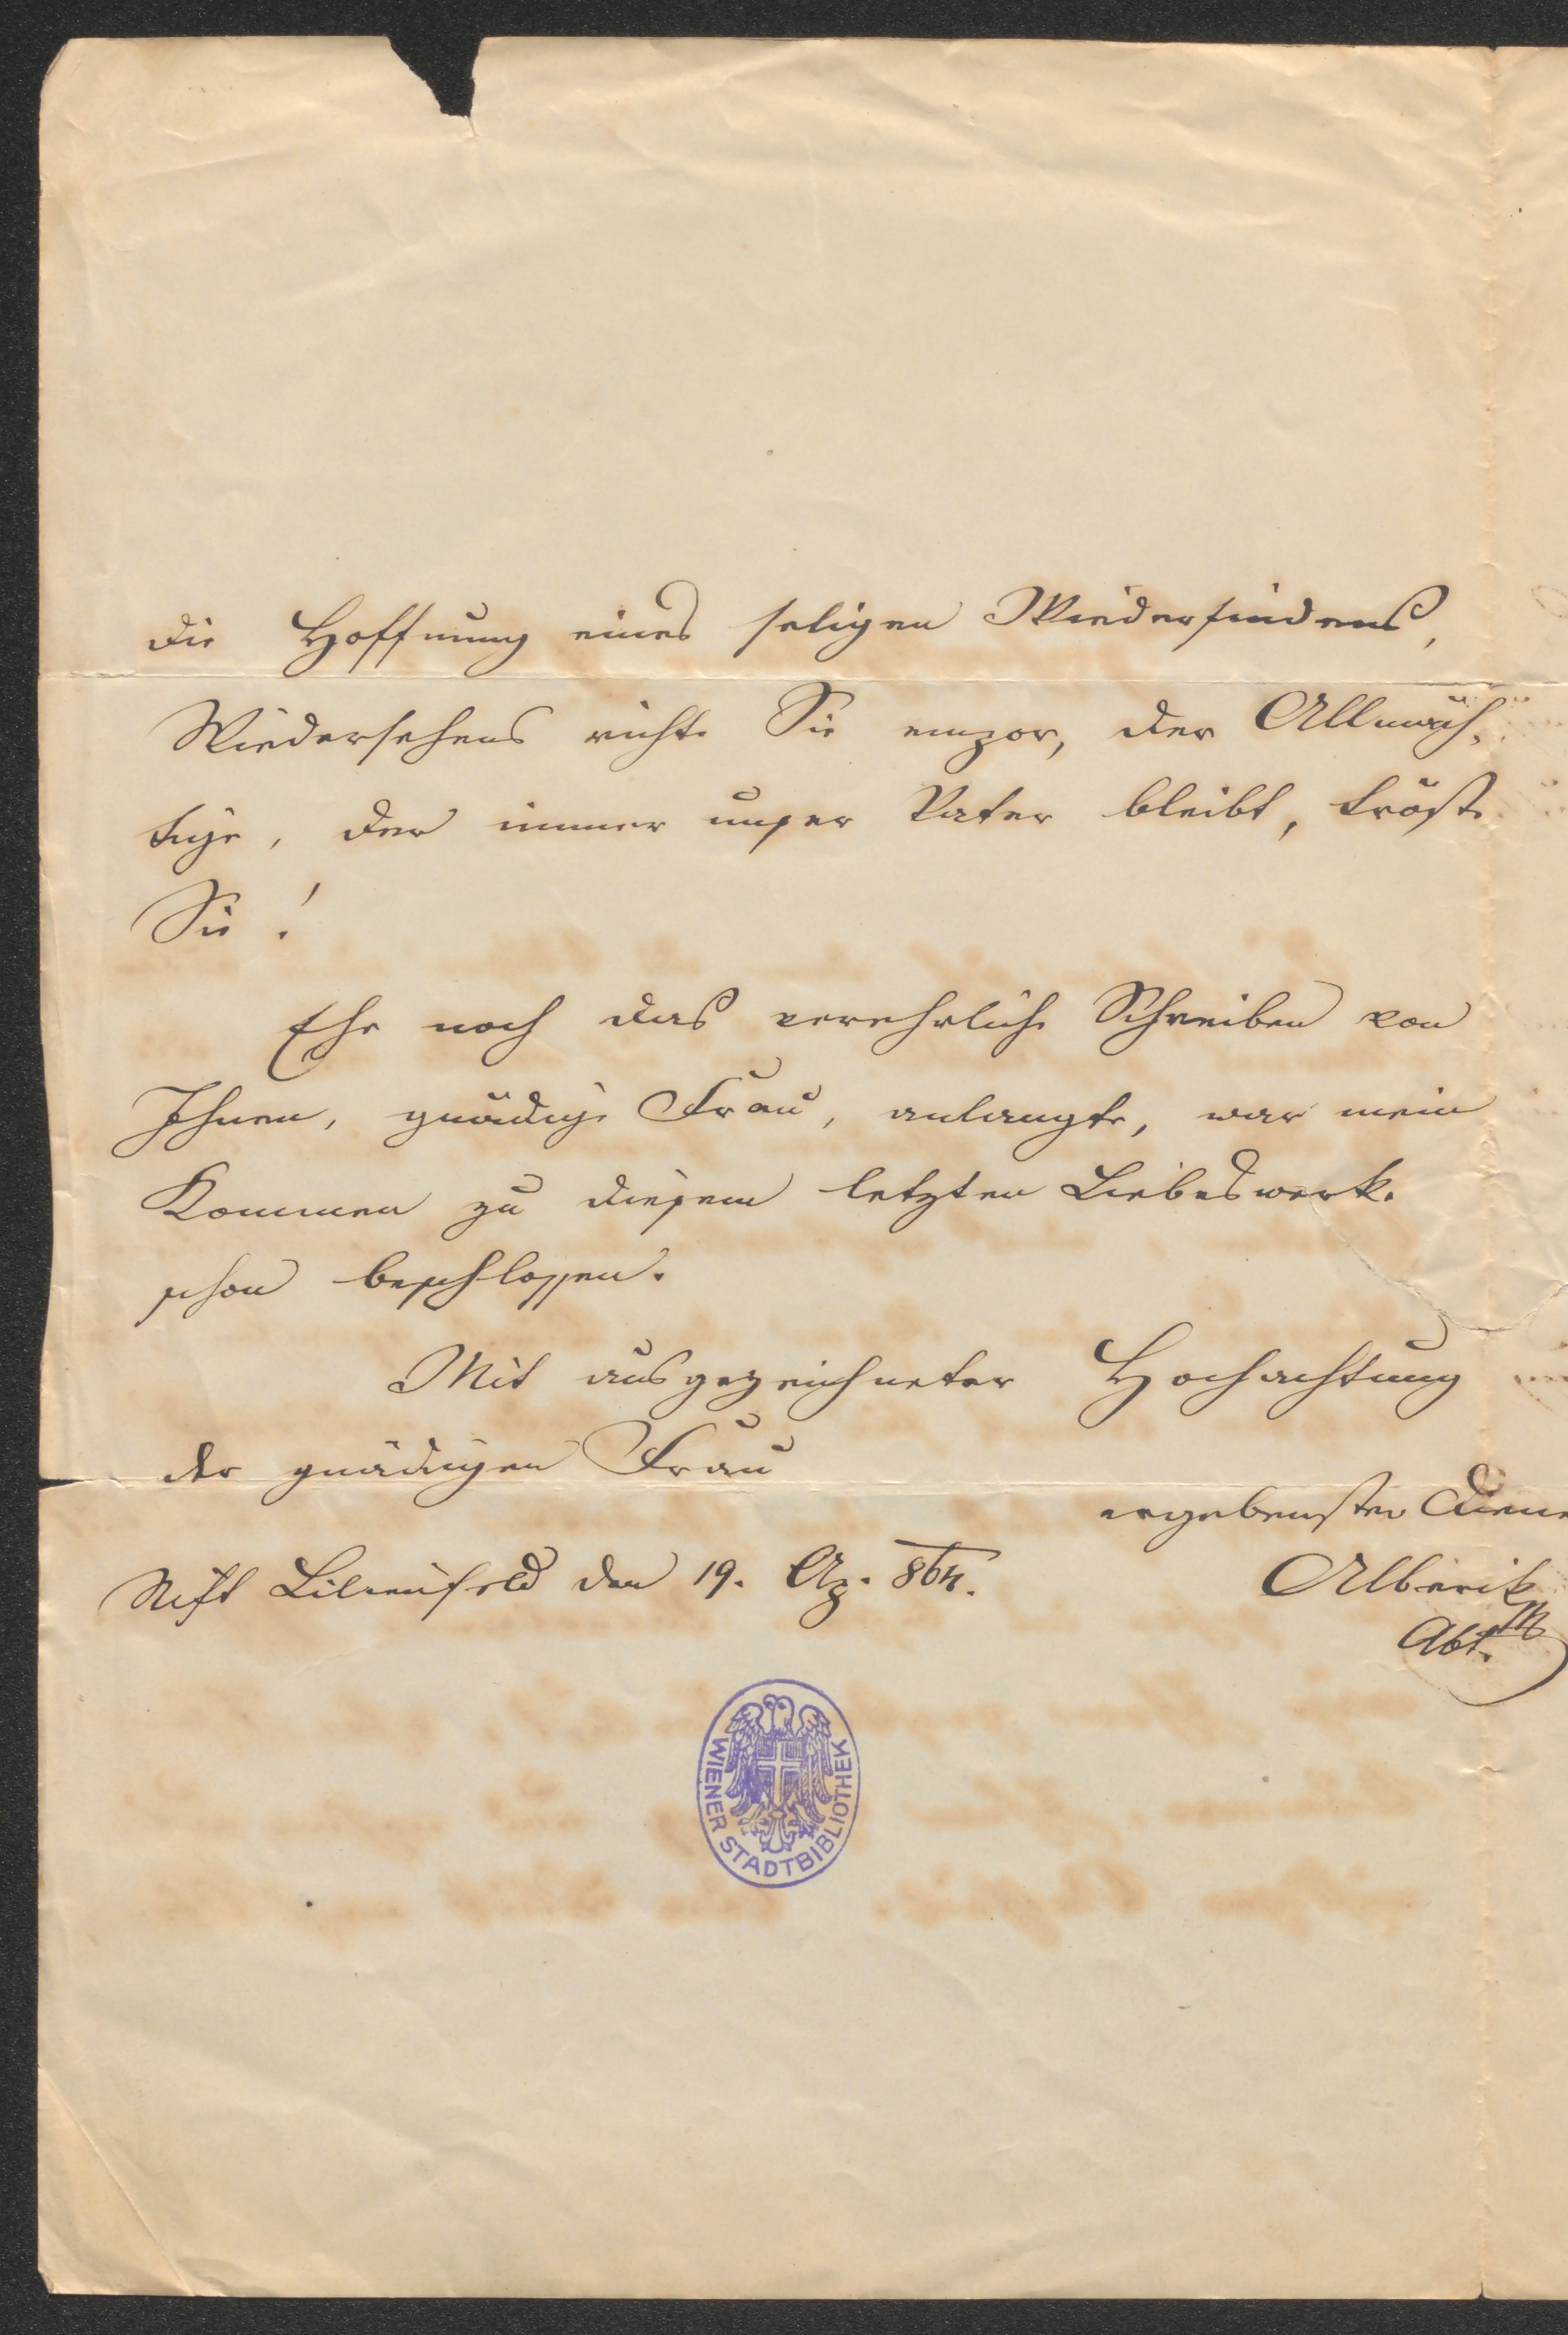 die Hoffnung eines seligen Wiederfindens,
Wiedersehens richte Sie empor, der Allmäch-
tige, der immer unser Vater bleibt, tröste
Sie!
Ehe noch das verehrliche Schreiben von
Ihnen, gnädige Frau, anlangte, war mein
Kommen zu diesem letzten Liebeswerke
schon beschlossen.
Mit ausgezeichneter Hochachtung
der gnädigen Frau
ergebenster Diene
Stift Lilienfeld den 19. Ap. 864.
Alberik
Abt.
WIENER STADTBIBLIOTHEK